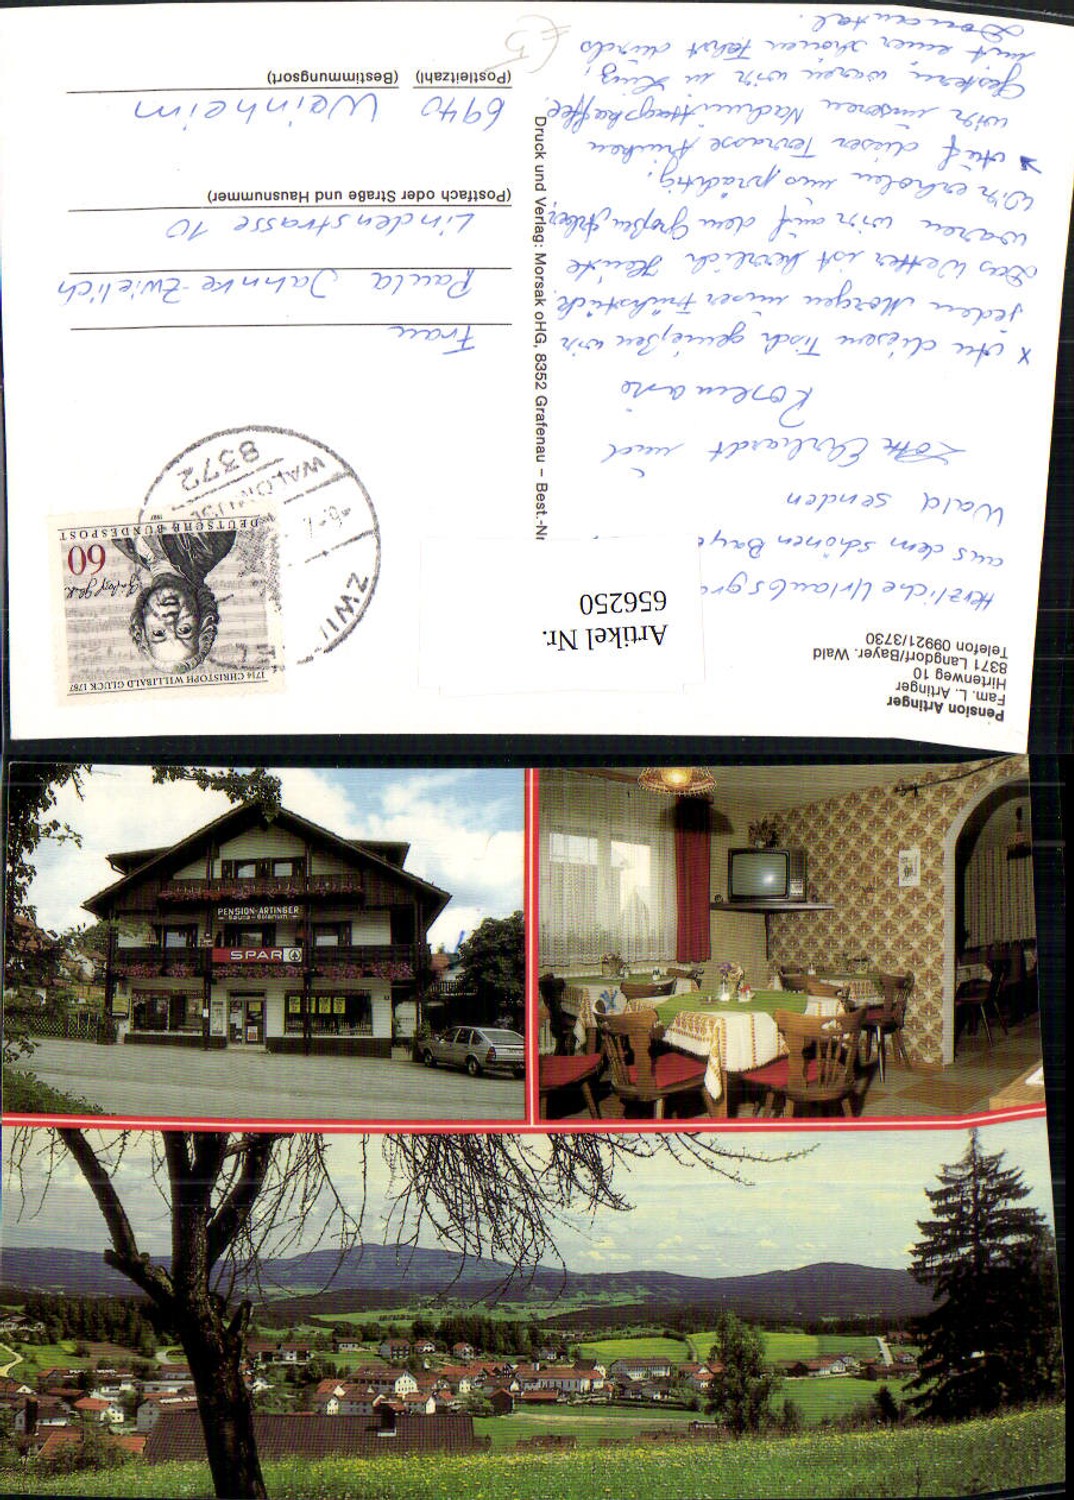 Pension Artinger
Fam. L. Artinger
Hirtenweg 10
8371 Langdorf/Bayer. Wald
Telefon 09921/3730
Herzliche Urlaubsgrü
aus dem schönen Baye
Wald senden
Lotte Ehrhardt und
Rosemarie
x An diesem Tisch genießen wir
jeden Morgen unser Frühstück.
Das Wetter ist herrlich. Heute
waren wir auf dem Großen Arber.
Wir erholen uns prächtig.
x Auf dieser Terrasse trinken
wir unseren Nachmittagskaffee.
Gestern waren wir in Linz,
mit einer schönen Fahrt durchs
Donautal.
Artikel Nr.
656250
Druck und Verlag: Morsak oHG, 8352 Grafenau – Best.-Nr
1714 CHRISTOPH WILLIBALD GLUCK 1787
60
DEUTSCHE BUNDESPOST
1987
ZWI
8372
Frau
Paula Jahnke-Zwielich
Lindenstrasse 10
(Postfach oder Straße und Hausnummer)
6940 Weinheim
(Postleitzahl) (Bestimmungsort)
€5
PENSION-ARTINGER
Sauna - Solarium
SPAR